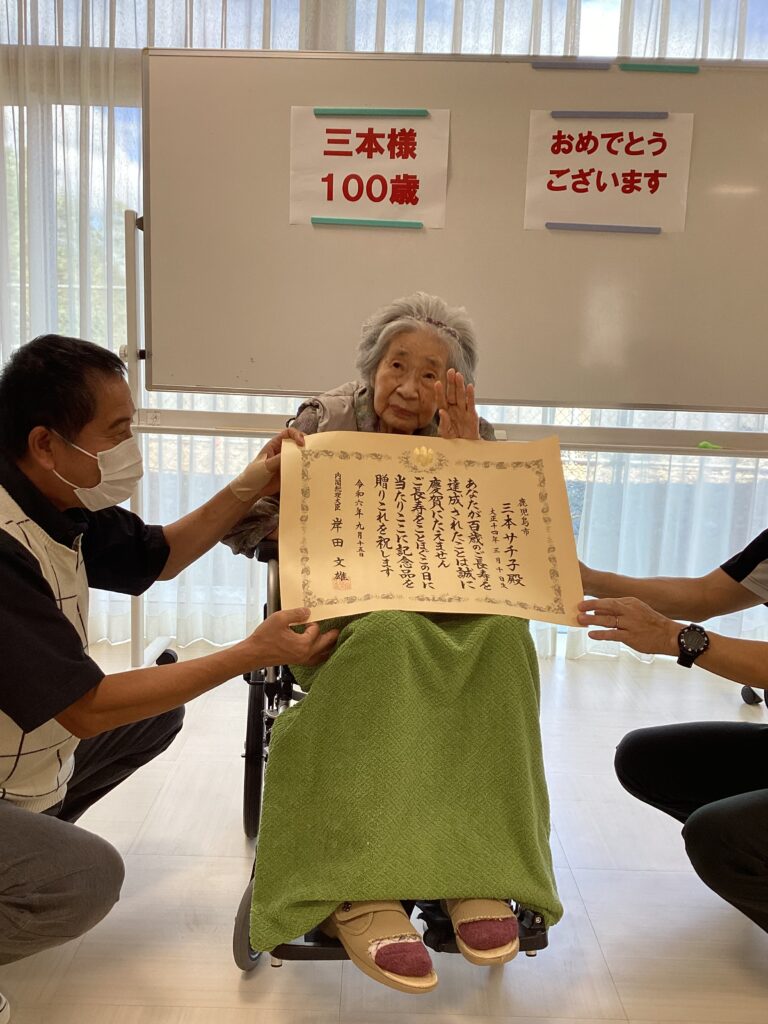 三本様
100歳
おめでとう
ございます
鹿児島市
三本サチ子殿
大正十四年三月十日生
あなたが百歳のご長寿を
達成されたことは誠に
慶賀にたえません
ご長寿をことほぐこの日に
当たりここに記念品を
贈りこれを祝します
令和六年九月十五日
内閣総理大臣 岸田文雄